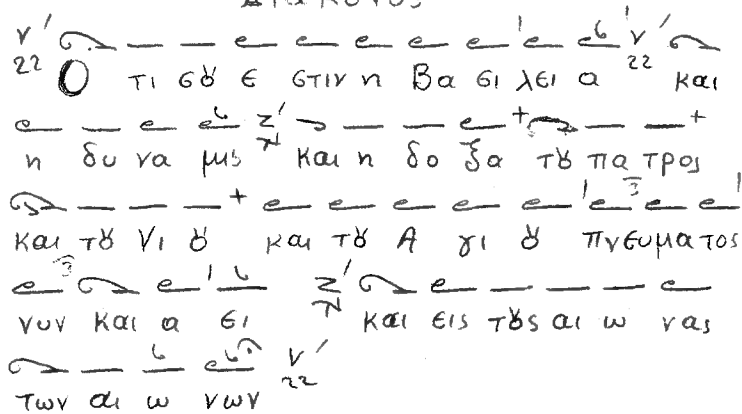 Διάκονος
Ο τι σȣ ε στιν η Βα σι λει α και
η δυ να μις και η δο ξα τȣ πα τρος
και τȣ Υι ȣ και τȣ Α γι ȣ πνευματος
νυν και α ει και εις τȣς αι ω νας
των αι ω νων